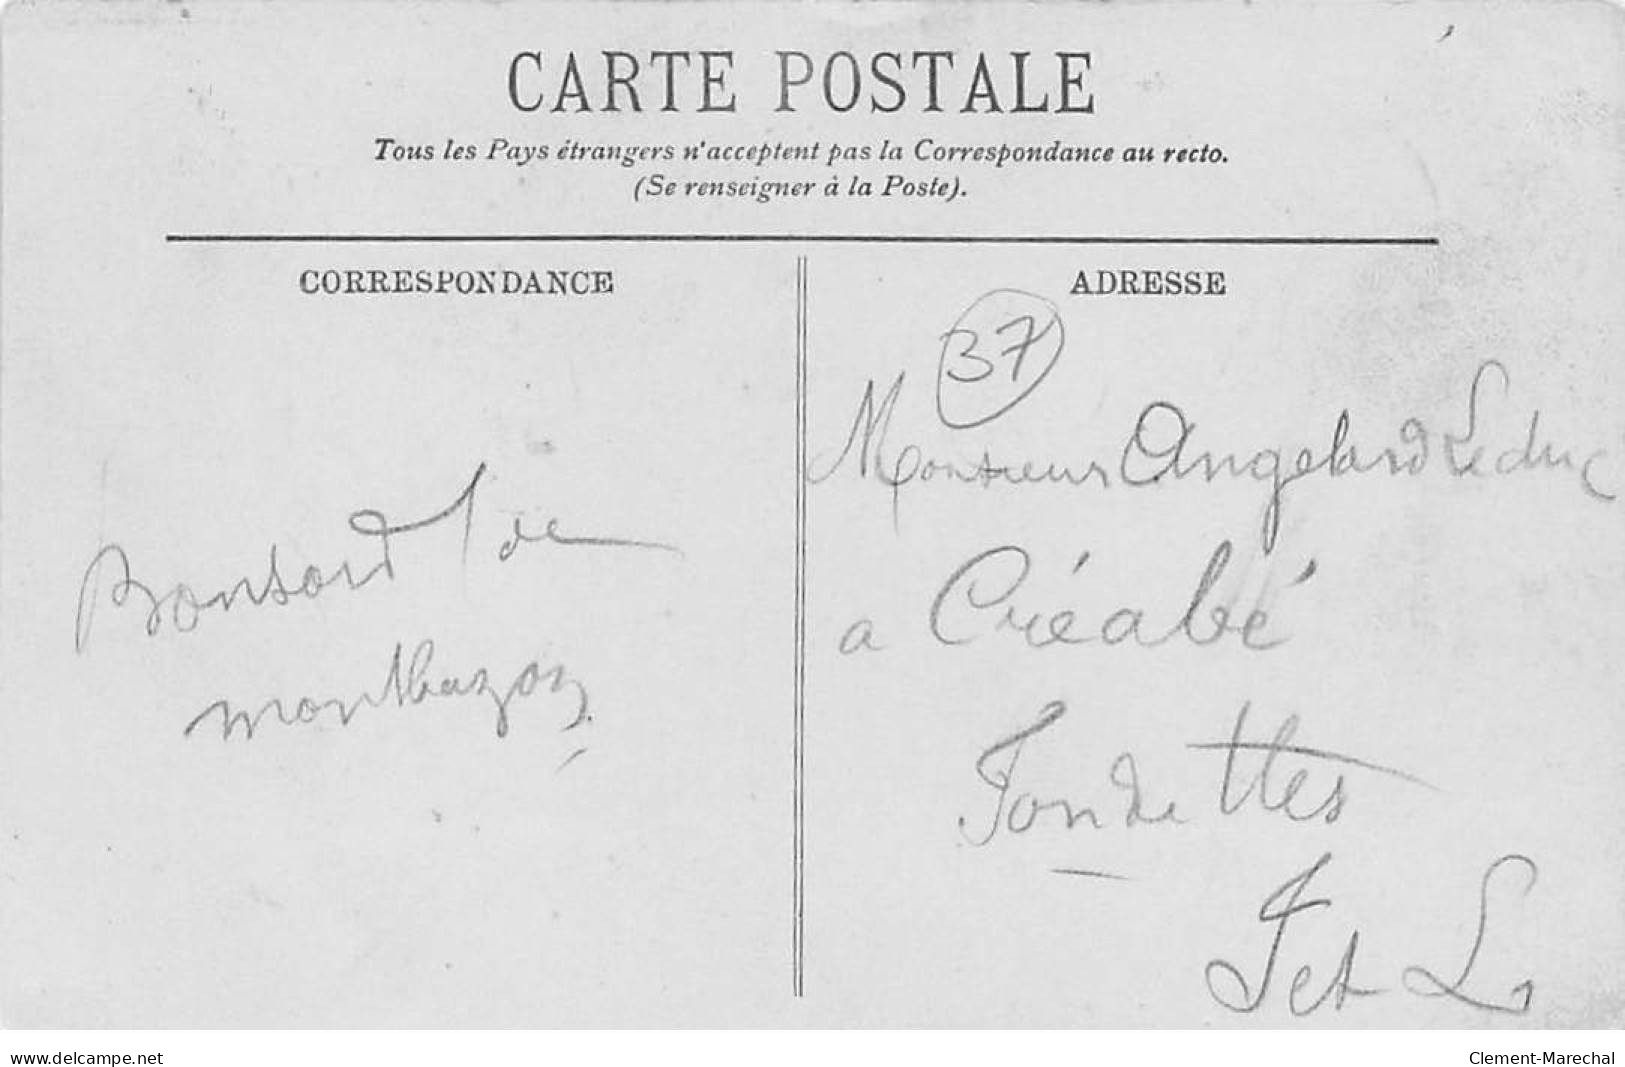 CARTE POSTALE
Tous les Pays étrangers n'acceptent pas la Correspondance au recto.
(Se renseigner à la Poste).
CORRESPONDANCE
ADRESSE
37
Bonsoir de
montbazon
Monsieur Angelard Leduc
a Créabé
Fondettes
I et L
www.delcampe.net
Clement-Marechal